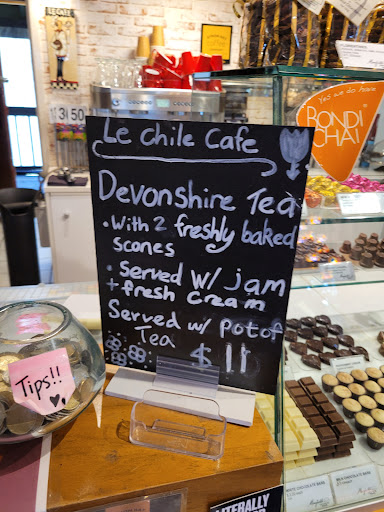 Le Chile Cafe
Devonshire Tea
• With 2 freshly baked
scones
• Served w/ jam
+ fresh cream
Served w/ pot of
Tea
$11
Tips!!
Yes we do have
BONDI
CHAI
LITERALLY